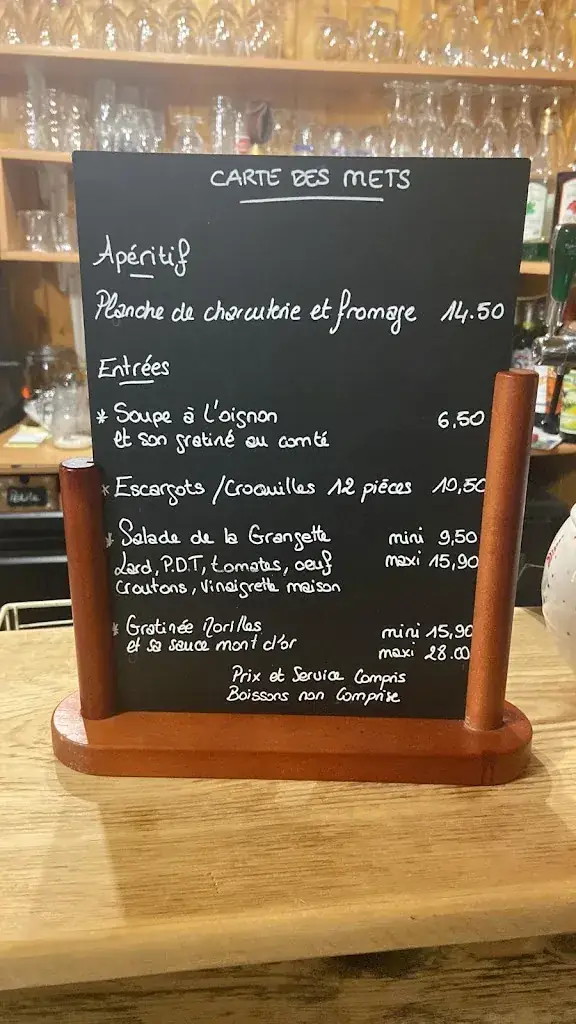 CARTE DES METS
Apéritif
Planche de charcuterie et fromage 14.50
Entrées
* Soupe à l'oignon 6,50
et son gratiné au comté
* Escargots / Croquilles 12 pièces 10,50
* Salade de la Grangette mini 9,50
Lard, P.D.T, tomates, oeuf maxi 15,90
croutons, vinaigrette maison
* Gratinée Morilles mini 15,90
et sa sauce mont d'or maxi 28.00
Prix et Service Compris
Boissons non Comprise